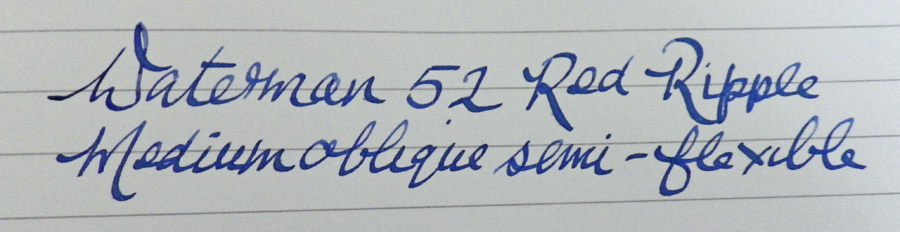 Waterman 52 Red Ripple
Medium oblique semi-flexible